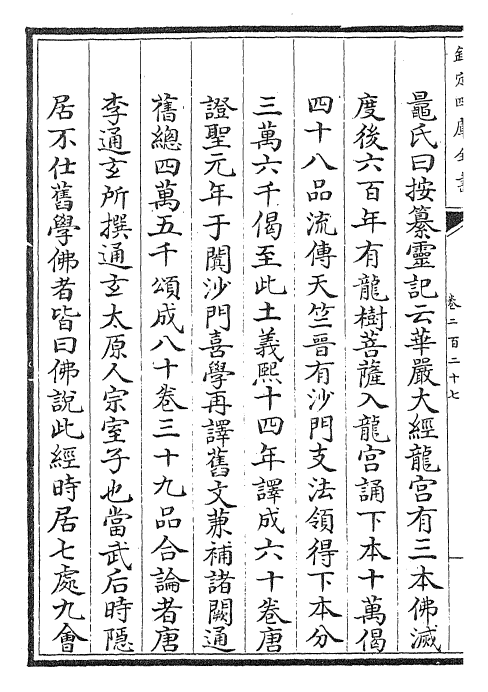 欽定四庫全書
卷二百二十七
鼂氏曰按纂靈記云華嚴大經龍宮有三本佛滅
度後六百年有龍樹菩薩入龍宮誦下本十萬偈
四十八品流傳天竺晉有沙門支法領得下本分
三萬六千偈至此土義熙十四年譯成六十卷唐
證聖元年于闐沙門喜學再譯舊文兼補諸闕通
舊總四萬五千頌成八十卷三十九品合論者唐
李通玄所撰通玄太原人宗室子也當武后時隱
居不仕舊學佛者皆曰佛說此經時居七處九會